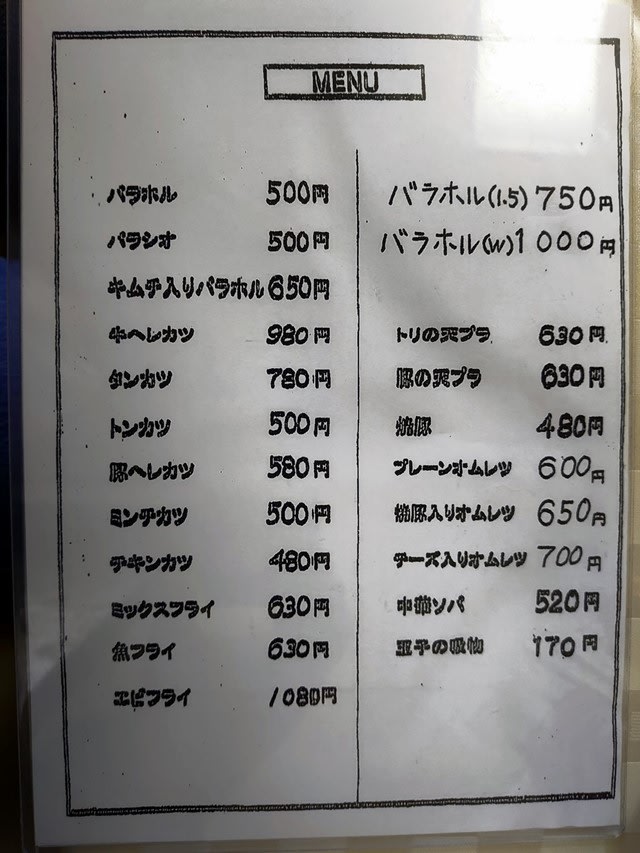 MENU
バラホル 500円
バラシオ 500円
キムチ入りバラホル 650円
牛ヘレカツ 980円
タンカツ 780円
トンカツ 500円
豚ヘレカツ 580円
ミンチカツ 500円
チキンカツ 480円
ミックスフライ 630円
魚フライ 630円
エビフライ 1080円
バラホル(1.5) 750円
バラホル(W) 1000円
トリの天プラ 630円
豚の天プラ 630円
焼豚 480円
プレーンオムレツ 600円
焼豚入りオムレツ 650円
チーズ入りオムレツ 700円
中華ソバ 520円
玉子の吸物 170円